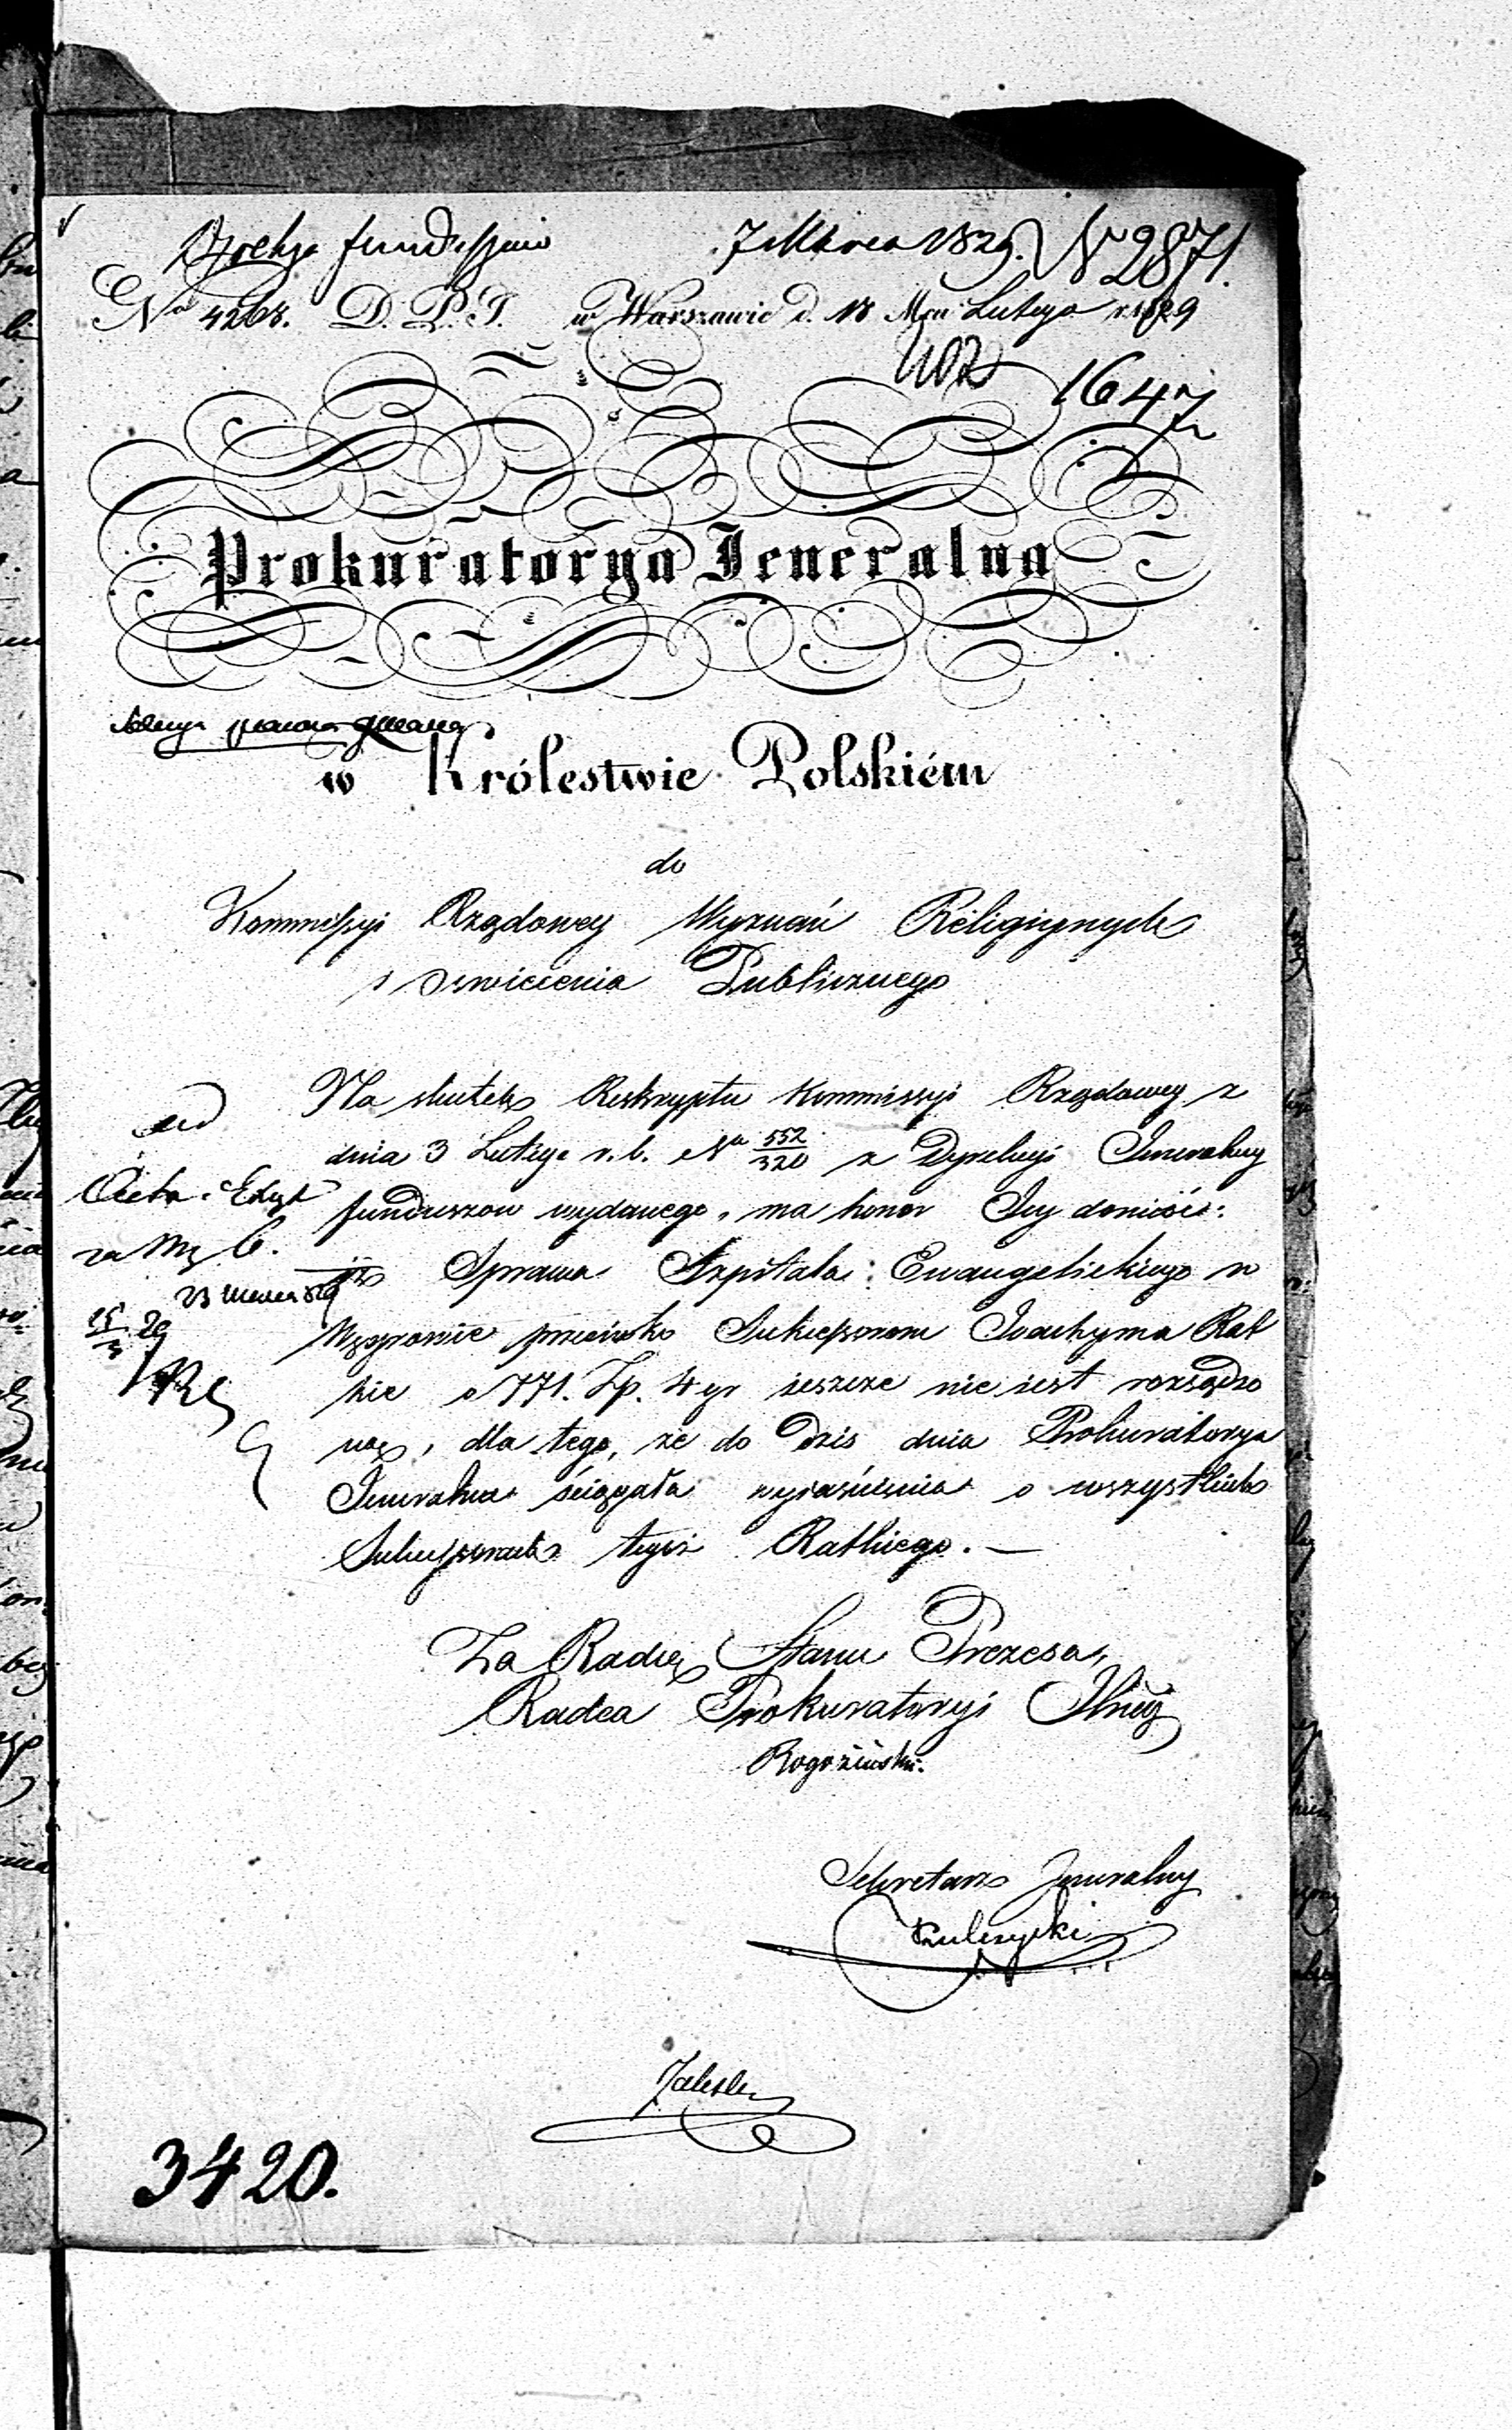 7 Marca 1829. N 2871.
No 4268. D.P.J. w Warszawie d. 18 Mca Lutego r. 1829
1647
Prokuratorya Jeneralna
w Królestwie Polskiém
do
Kommissyi Rządowey Wyznań Religiynych
i Oswiecenia Publicznego
Na skutek Reskryptu Kommissyi Rządowey z
dnia 3 Lutego r. b. No 552/320 z Dyrekcyi Jeneralney
funduszow wydanego, ma honor Jey donieść:
ad
Acta
iż Sprawa Szpitala Ewangelickiego w
Węgrowie przeciwko Sukcessorom Joachyma Rat
15/3 29
kie o 771. Zp. 4 gr ieszcze nie iest rozsądzo
ną, dla tego, że do dzis dnia Prokuratorya
Jeneralna ściągała wyiaśnienia o wszystkich
Sukcessorach tegoż Ratkiego. —
Za Radcę Stanu Prezesa,
Radca Prokuratoryi Jlney
Rogoziński.
Sekretarz Jeneralny
Kulczycki
3420.